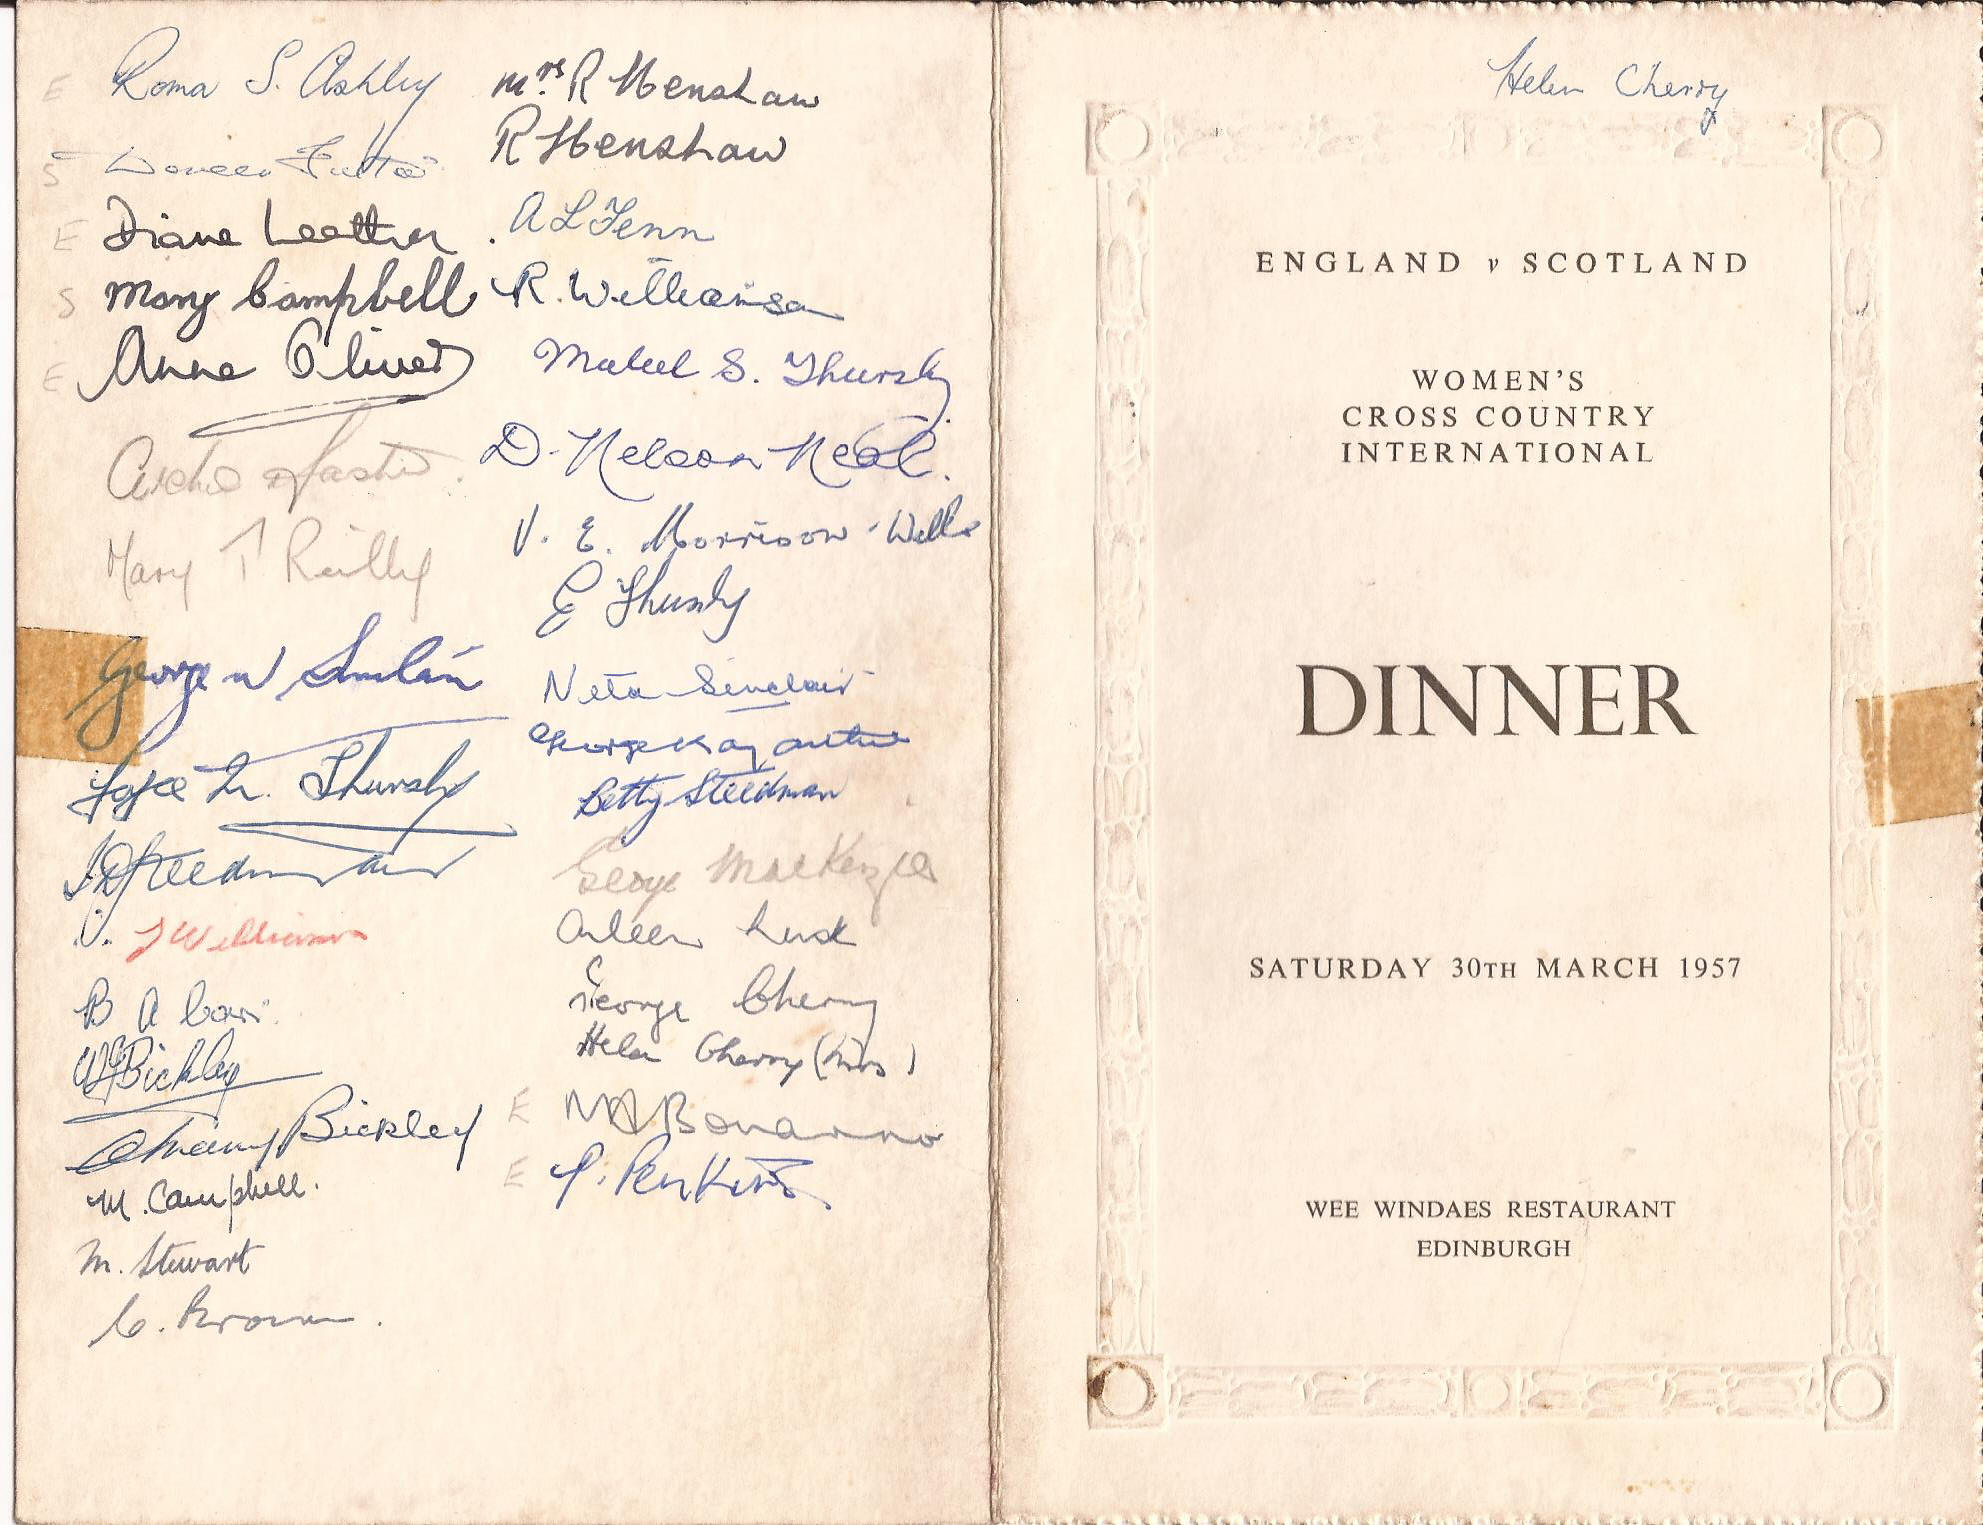 E Roma S. Ashley
S Doreen Fulton
E Diane Leather
S Mary Campbell
E Anne Oliver
Archie
Mary T Reilly
George W Sinclair
Joyce M. Thursby
J D Steedman
J Williamson
B A Carr
W Bickley
Bickley
M. Campbell.
M. Stewart
C. Brown.
Mrs. R Henshaw
R Henshaw
A L Fenn
R. Williamson
Mabel S. Thursby
D. Nelson Neal.
V. E. Morrison-Wells
E Thursby
Neta Sinclair
George Kay
Betty Steedman
George MacKenzie
Aileen Lusk
George Cherry
Helen Cherry (Mrs)
E M A Bonanno
E P. Perkins
Helen Cherry
ENGLAND v SCOTLAND
WOMEN'S
CROSS COUNTRY
INTERNATIONAL
DINNER
SATURDAY 30TH MARCH 1957
WEE WINDAES RESTAURANT
EDINBURGH